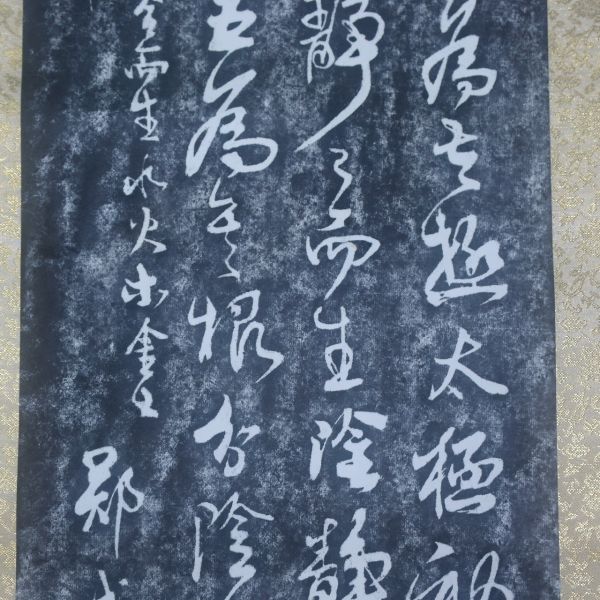 為無極太極
靜之而生陰靜
互為其根分陰
合而生水火木金土
鄭